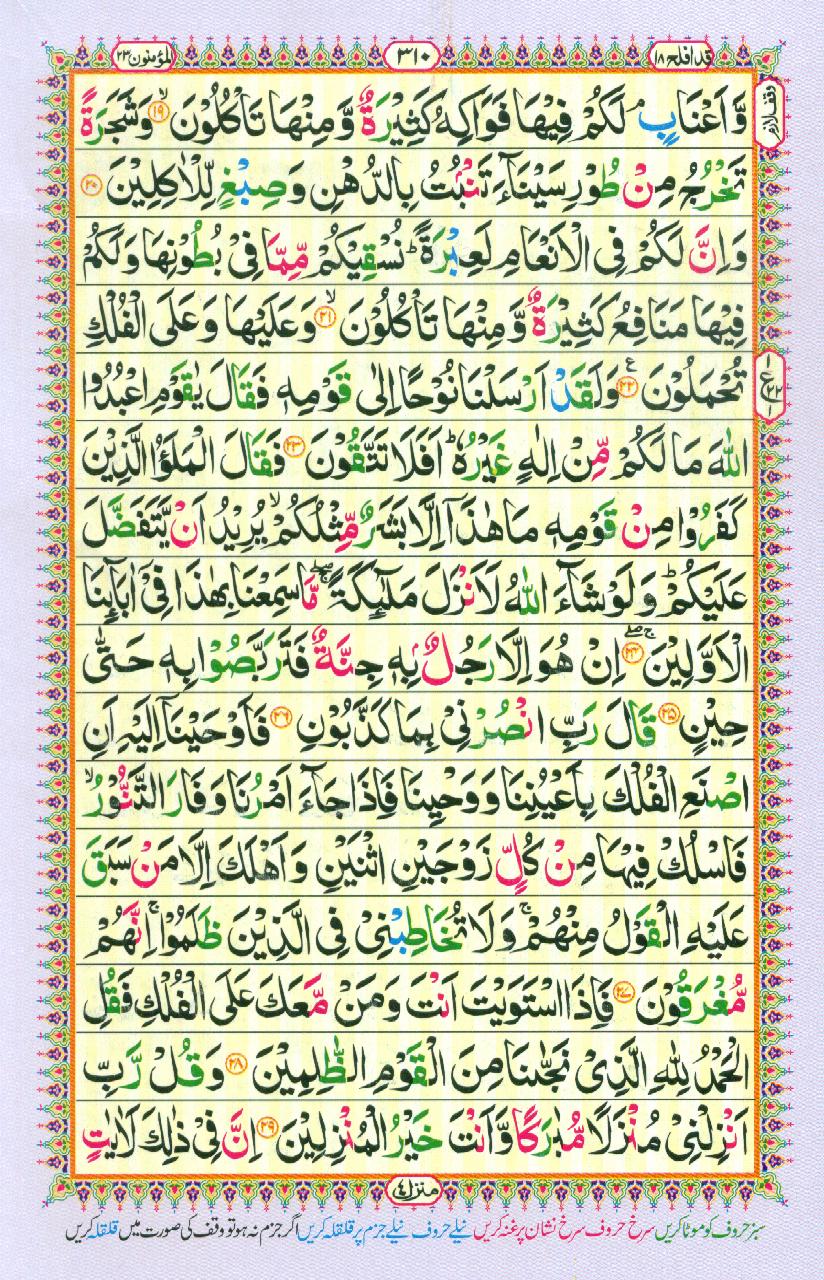 قد افلح ۱۸ ۳۱۰ المؤمنون ۲۳
وقف لازم
وَّ اَعْنَابٍ ۘ لَكُمْ فِيْهَا فَوَاكِهُ كَثِيْرَةٌ وَّ مِنْهَا تَاْكُلُوْنَ ۙ﴿۱۹﴾ وَ شَجَرَةً
تَخْرُجُ مِنْ طُوْرِ سَيْنَآءَ تَنْۢبُتُ بِالدُّهْنِ وَ صِبْغٍ لِّلْاٰكِلِيْنَ ﴿۲۰﴾
وَ اِنَّ لَكُمْ فِی الْاَنْعَامِ لَعِبْرَةً ؕ نُسْقِيْكُمْ مِّمَّا فِیْ بُطُوْنِهَا وَ لَكُمْ
فِيْهَا مَنَافِعُ كَثِيْرَةٌ وَّ مِنْهَا تَاْكُلُوْنَ ۙ﴿۲۱﴾ وَ عَلَيْهَا وَ عَلَی الْفُلْكِ
تُحْمَلُوْنَ ﴿۲۲﴾ع وَ لَقَدْ اَرْسَلْنَا نُوْحًا اِلٰی قَوْمِهٖ فَقَالَ يٰقَوْمِ اعْبُدُوا
اللّٰهَ مَا لَكُمْ مِّنْ اِلٰهٍ غَيْرُهٗ ؕ اَفَلَا تَتَّقُوْنَ ﴿۲۳﴾ فَقَالَ الْمَلَؤُا الَّذِيْنَ
كَفَرُوْا مِنْ قَوْمِهٖ مَا هٰذَاۤ اِلَّا بَشَرٌ مِّثْلُكُمْ ۙ يُرِيْدُ اَنْ يَّتَفَضَّلَ
عَلَيْكُمْ ؕ وَ لَوْ شَآءَ اللّٰهُ لَاَنْزَلَ مَلٰٓئِكَةً ۖۚ مَّا سَمِعْنَا بِهٰذَا فِیْۤ اٰبَآئِنَا
الْاَوَّلِيْنَ ﴿۲۴﴾ۚ اِنْ هُوَ اِلَّا رَجُلٌۢ بِهٖ جِنَّةٌ فَتَرَبَّصُوْا بِهٖ حَتّٰی
حِيْنٍ ﴿۲۵﴾ قَالَ رَبِّ انْصُرْنِیْ بِمَا كَذَّبُوْنِ ﴿۲۶﴾ فَاَوْحَيْنَاۤ اِلَيْهِ اَنِ
اصْنَعِ الْفُلْكَ بِاَعْيُنِنَا وَ وَحْيِنَا فَاِذَا جَآءَ اَمْرُنَا وَ فَارَ التَّنُّوْرُ ۙ
فَاسْلُكْ فِيْهَا مِنْ كُلٍّ زَوْجَيْنِ اثْنَيْنِ وَ اَهْلَكَ اِلَّا مَنْ سَبَقَ
عَلَيْهِ الْقَوْلُ مِنْهُمْ ۚ وَ لَا تُخَاطِبْنِیْ فِی الَّذِيْنَ ظَلَمُوْا ۚ اِنَّهُمْ
مُّغْرَقُوْنَ ﴿۲۷﴾ فَاِذَا اسْتَوَيْتَ اَنْتَ وَ مَنْ مَّعَكَ عَلَی الْفُلْكِ فَقُلِ
الْحَمْدُ لِلّٰهِ الَّذِیْ نَجّٰىنَا مِنَ الْقَوْمِ الظّٰلِمِيْنَ ﴿۲۸﴾ وَ قُلْ رَّبِّ
اَنْزِلْنِیْ مُنْزَلًا مُّبٰرَكًا وَّ اَنْتَ خَيْرُ الْمُنْزِلِيْنَ ﴿۲۹﴾ اِنَّ فِیْ ذٰلِكَ لَاٰيٰتٍ
منزل ٤
سبز حروف کو موٹا کریں سرخ حروف سرخ نشان پر غنہ کریں نیلے حروف نیلے جزم پر قلقلہ کریں اگر جزم نہ ہو تو وقف کی صورت میں قلقلہ کریں